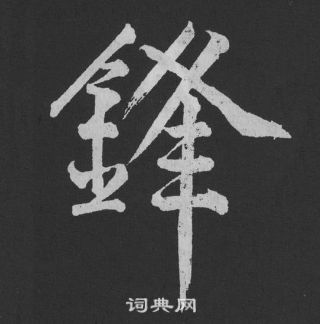 鋒
词典网